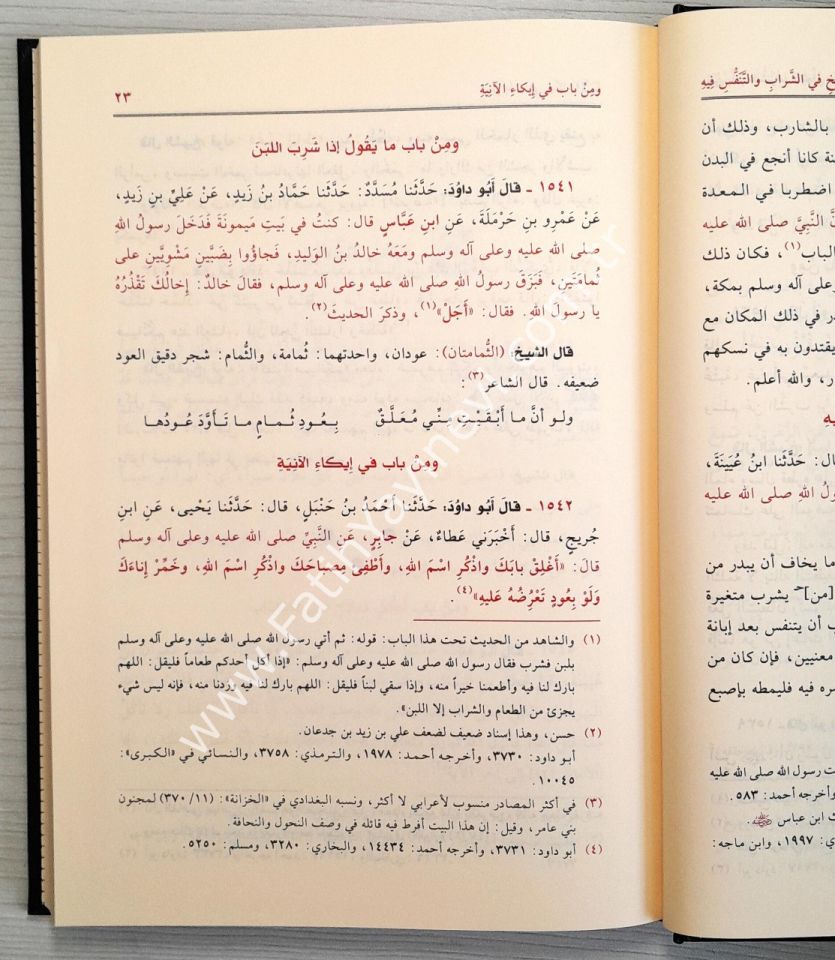 ومِنْ باب في إيكاءِ الآنِيَةِ
٢٣
ومِنْ باب ما يَقُولُ إذا شَرِبَ اللبَنَ
١٥٤١ ـ قالَ أبُو داوُدَ: حَدَّثَنا مُسَدَّدٌ: حَدَّثَنا حَمَّادُ بنُ زَيدٍ، عَنْ عَلِيِّ بنِ زَيدٍ،
عَنْ عَمْرِو بنِ حَرْمَلَةَ، عَنِ ابنِ عَبَّاسٍ قال: كنتُ في بَيتِ مَيمونَةَ فَدَخَلَ رسولُ اللهِ
صلى الله عليه وعلى آله وسلم ومَعَهُ خالدُ بنُ الوَليدِ، فَجاؤُوا بِضَبَّينِ مَشْويَّينِ على
ثُمامَتَينِ، فَبَزَقَ رسولُ اللهِ صلى الله عليه وعلى آله وسلم، فقالَ خالدٌ: إخالُكَ تَقْذُرُهُ
يا رسولَ اللهِ. فقال: «أَجَلْ»(١)، وذكرَ الحديثَ(٢).
قال الشيخ: (الثُّمامتان): عودان، واحدتهما: ثُمامة، والثُّمام: شجر دقيق العود
ضعيفه. قال الشاعر(٣):
ولو أنَّ ما أَبْقَيْتِ مِنِّي مُعَلَّقٌ بِعُودِ ثُمامٍ ما تَأَوَّدَ عُودُها
ومِنْ باب في إيكاءِ الآنِيَةِ
١٥٤٢ ـ قالَ أبُو داوُدَ: حَدَّثَنا أَحْمَدُ بنُ حَنْبَلٍ، قال: حَدَّثَنا يَحْيى، عَنِ ابنِ
جُريجٍ، قال: أَخْبَرَني عَطاءٌ، عَنْ جابِرٍ، عَنِ النَّبِيِّ صلى الله عليه وعلى آله وسلم
قالَ: «أَغْلِقْ بابَكَ واذْكُرِ اسْمَ اللهِ، وأَطْفِئْ مِصباحَكَ واذْكُرِ اسْمَ اللهِ، وخَمِّرْ إناءَكَ
ولَوْ بِعُودٍ تَعْرُضُهُ عَليهِ»(٤).
(١) والشاهد من الحديث تحت هذا الباب: قوله: ثم أتي رسول الله صلى الله عليه وعلى آله وسلم
بلبن فشرب فقال رسول الله صلى الله عليه وعلى آله وسلم: «إذا أكل أحدكم طعاماً فليقل: اللهم
بارك لنا فيه وأطعمنا خيراً منه، وإذا سقي لبناً فليقل: اللهم بارك لنا فيه وزدنا منه، فإنه ليس شيء
يجزئ من الطعام والشراب إلا اللبن».
(٢) حسن، وهذا إسناد ضعيف لضعف علي بن زيد بن جدعان.
أبو داود: ٣٧٣٠، وأخرجه أحمد: ١٩٧٨، والترمذي: ٣٧٥٨، والنسائي في «الكبرى»:
١٠٠٤٥.
(٣) في أكثر المصادر منسوب لأعرابي لا أكثر، ونسبه البغدادي في «الخزانة» (١١/ ٣٧٠) لمجنون
بني عامر، وقيل: إن هذا البيت أفرط فيه قائله في وصف النحول والنحافة.
(٤) أبو داود: ٣٧٣١، وأخرجه أحمد: ١٤٤٣٤، والبخاري: ٣٢٨٠، ومسلم: ٥٢٥٠.
في الشَّرابِ والتَّنَفُّسِ فِيهِ
بالشارب، وذلك أن
كانا أنجع في البدن
اضطربا في المعدة
النَّبيَّ صلى الله عليه
الباب(١)، فكان ذلك
وعلى آله وسلم بمكة،
في ذلك المكان مع
يقتدون به في نسكهم
والله أعلم.
قال: حَدَّثَنا ابنُ عُيَينَةَ،
اللهِ صلى الله عليه
ما يخاف أن يبدر من
[من] يشرب متغيرة
أن يتنفس بعد إبانة
معنيين، فإن كان من
فيه فليمطه بإصبع
رسول الله صلى الله عليه
وأخرجه أحمد: ٥٨٣.
ابن عباس
١٩٩٧، وابن ماجه:
www.FatihYayinevi.com.tr